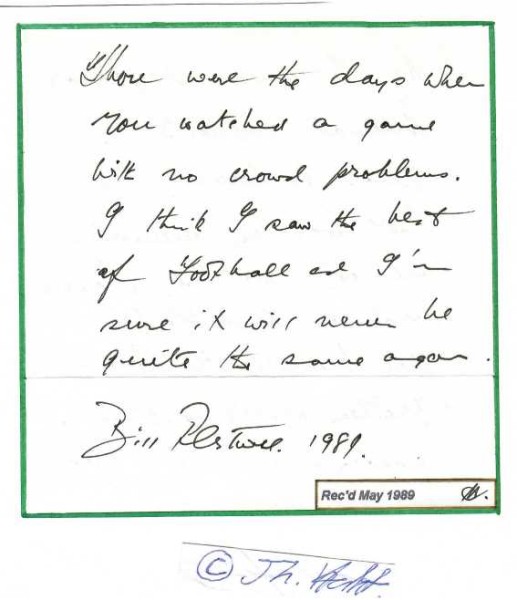 Those were the days when
you watched a game
with no crowd problems.
I think I saw the best
of Football and I'm
sure it will never be
quite the same again.
Bill 1989.
Rec'd May 1989
© Th.